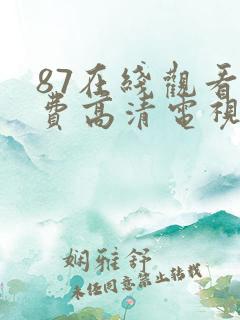 87在綫觀看
費高清電視
娴雅舒
未经同意禁止转载